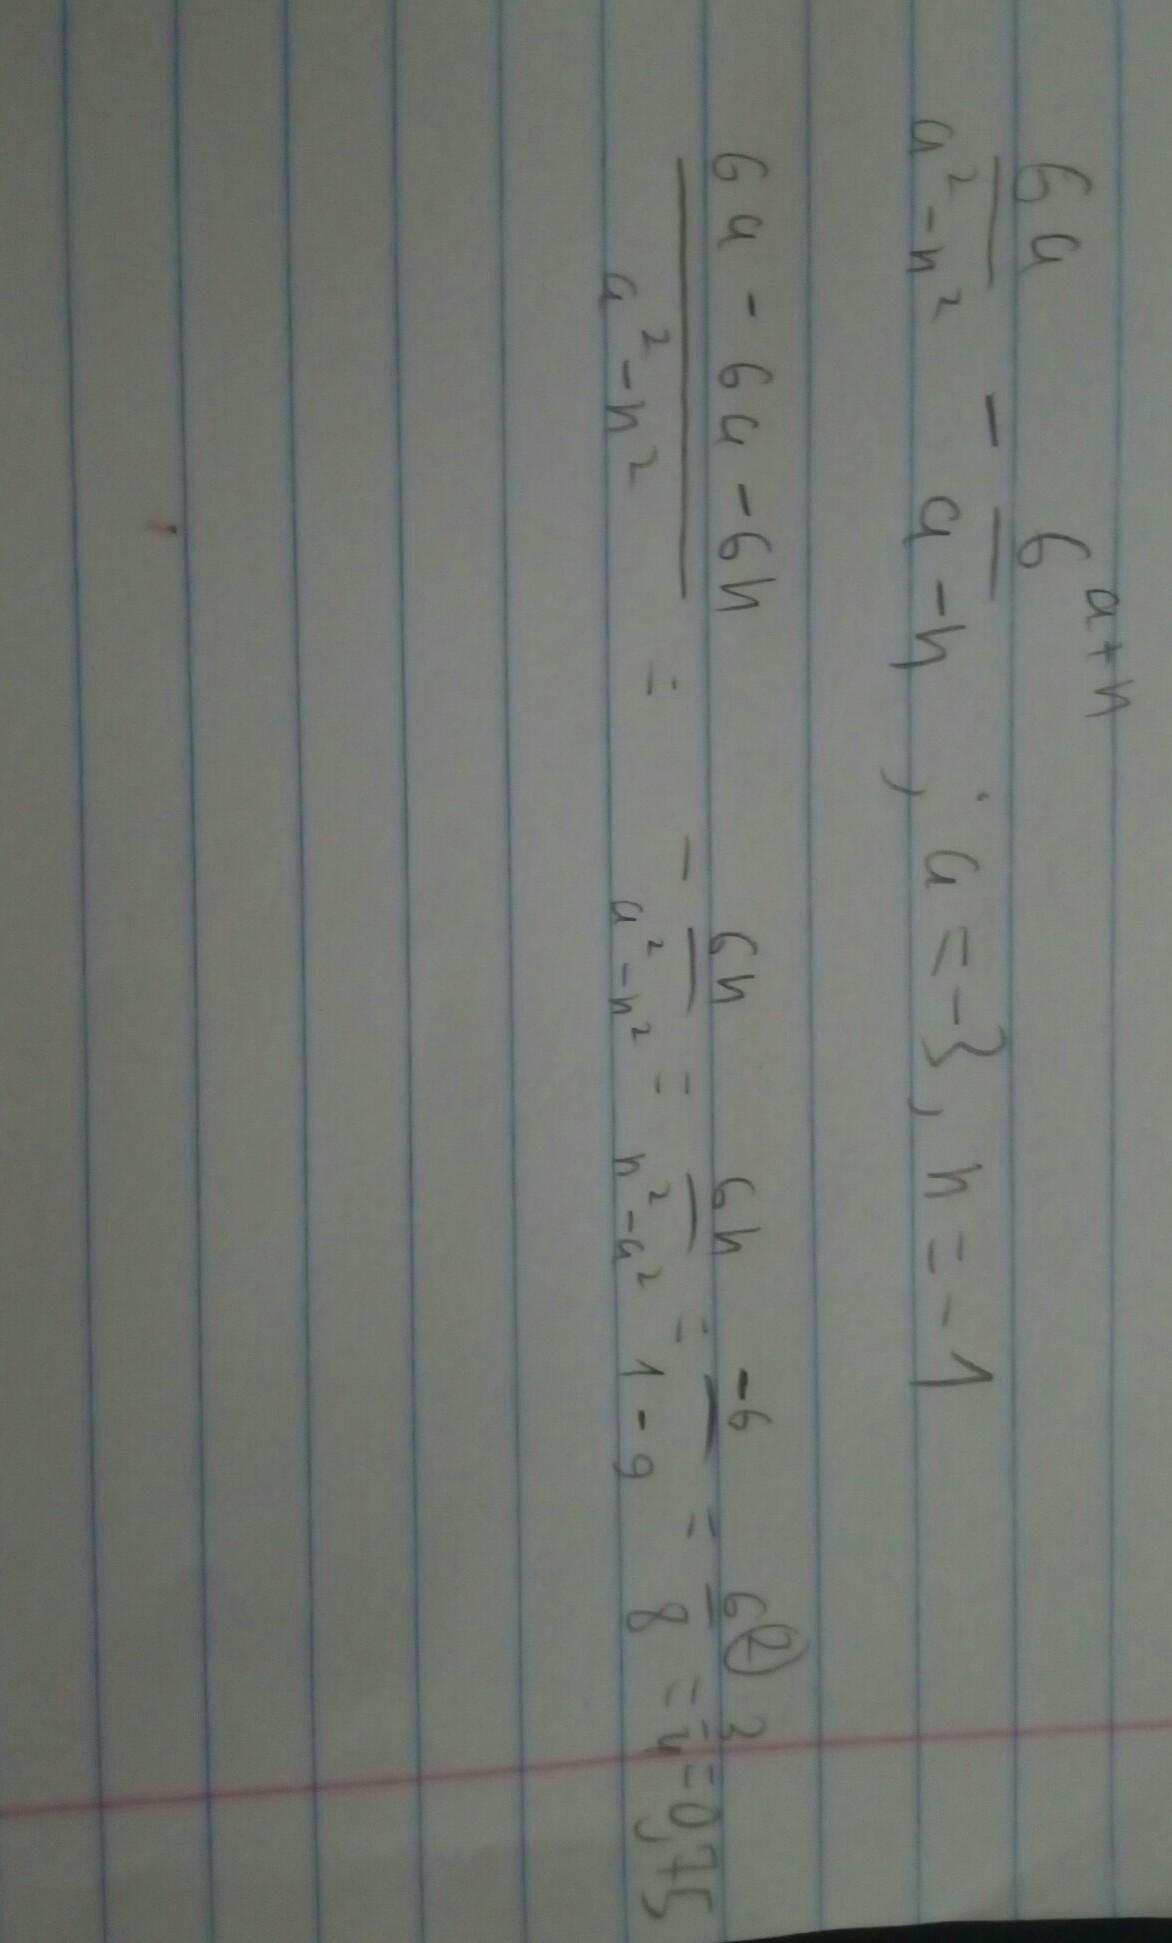 6a/(a² - n²) - 6^(a+n)/(a - n) ; a = -3, n = -1
(6a - 6a - 6n)/(a² - n²) = - 6n/(a² - n²) = 6n/(n² - a²) = -6/(1 - 9) = 6/8 (2) = 3/4 = 0,75